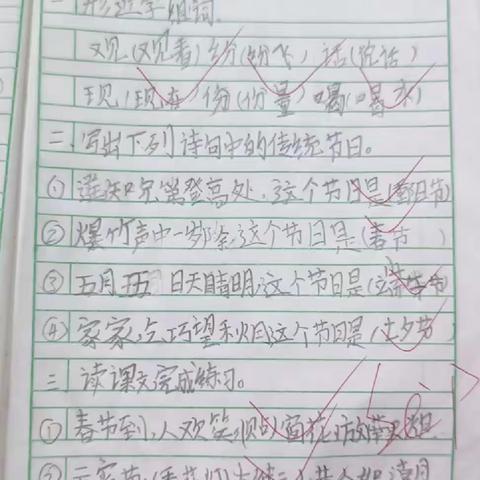 一 形近字组词.
观(观看) 纷(纷飞) 话(说话)
现(现在) 份(份量) 喝(喝水)
二、写出下列诗句中的传统节日。
① 遥知兄弟登高处,这个节日是(重阳节)
② 爆竹声中一岁除,这个节日是(春节)
③ 五月五日天晴明,这个节日是(端午节)
④ 家家乞巧望秋月,这个节日是(七夕节)
三、读课文完成练习。
① 春节到,人欢笑,贴窗花,放鞭炮.
② 元宵节,看花灯,大街小巷人如潮